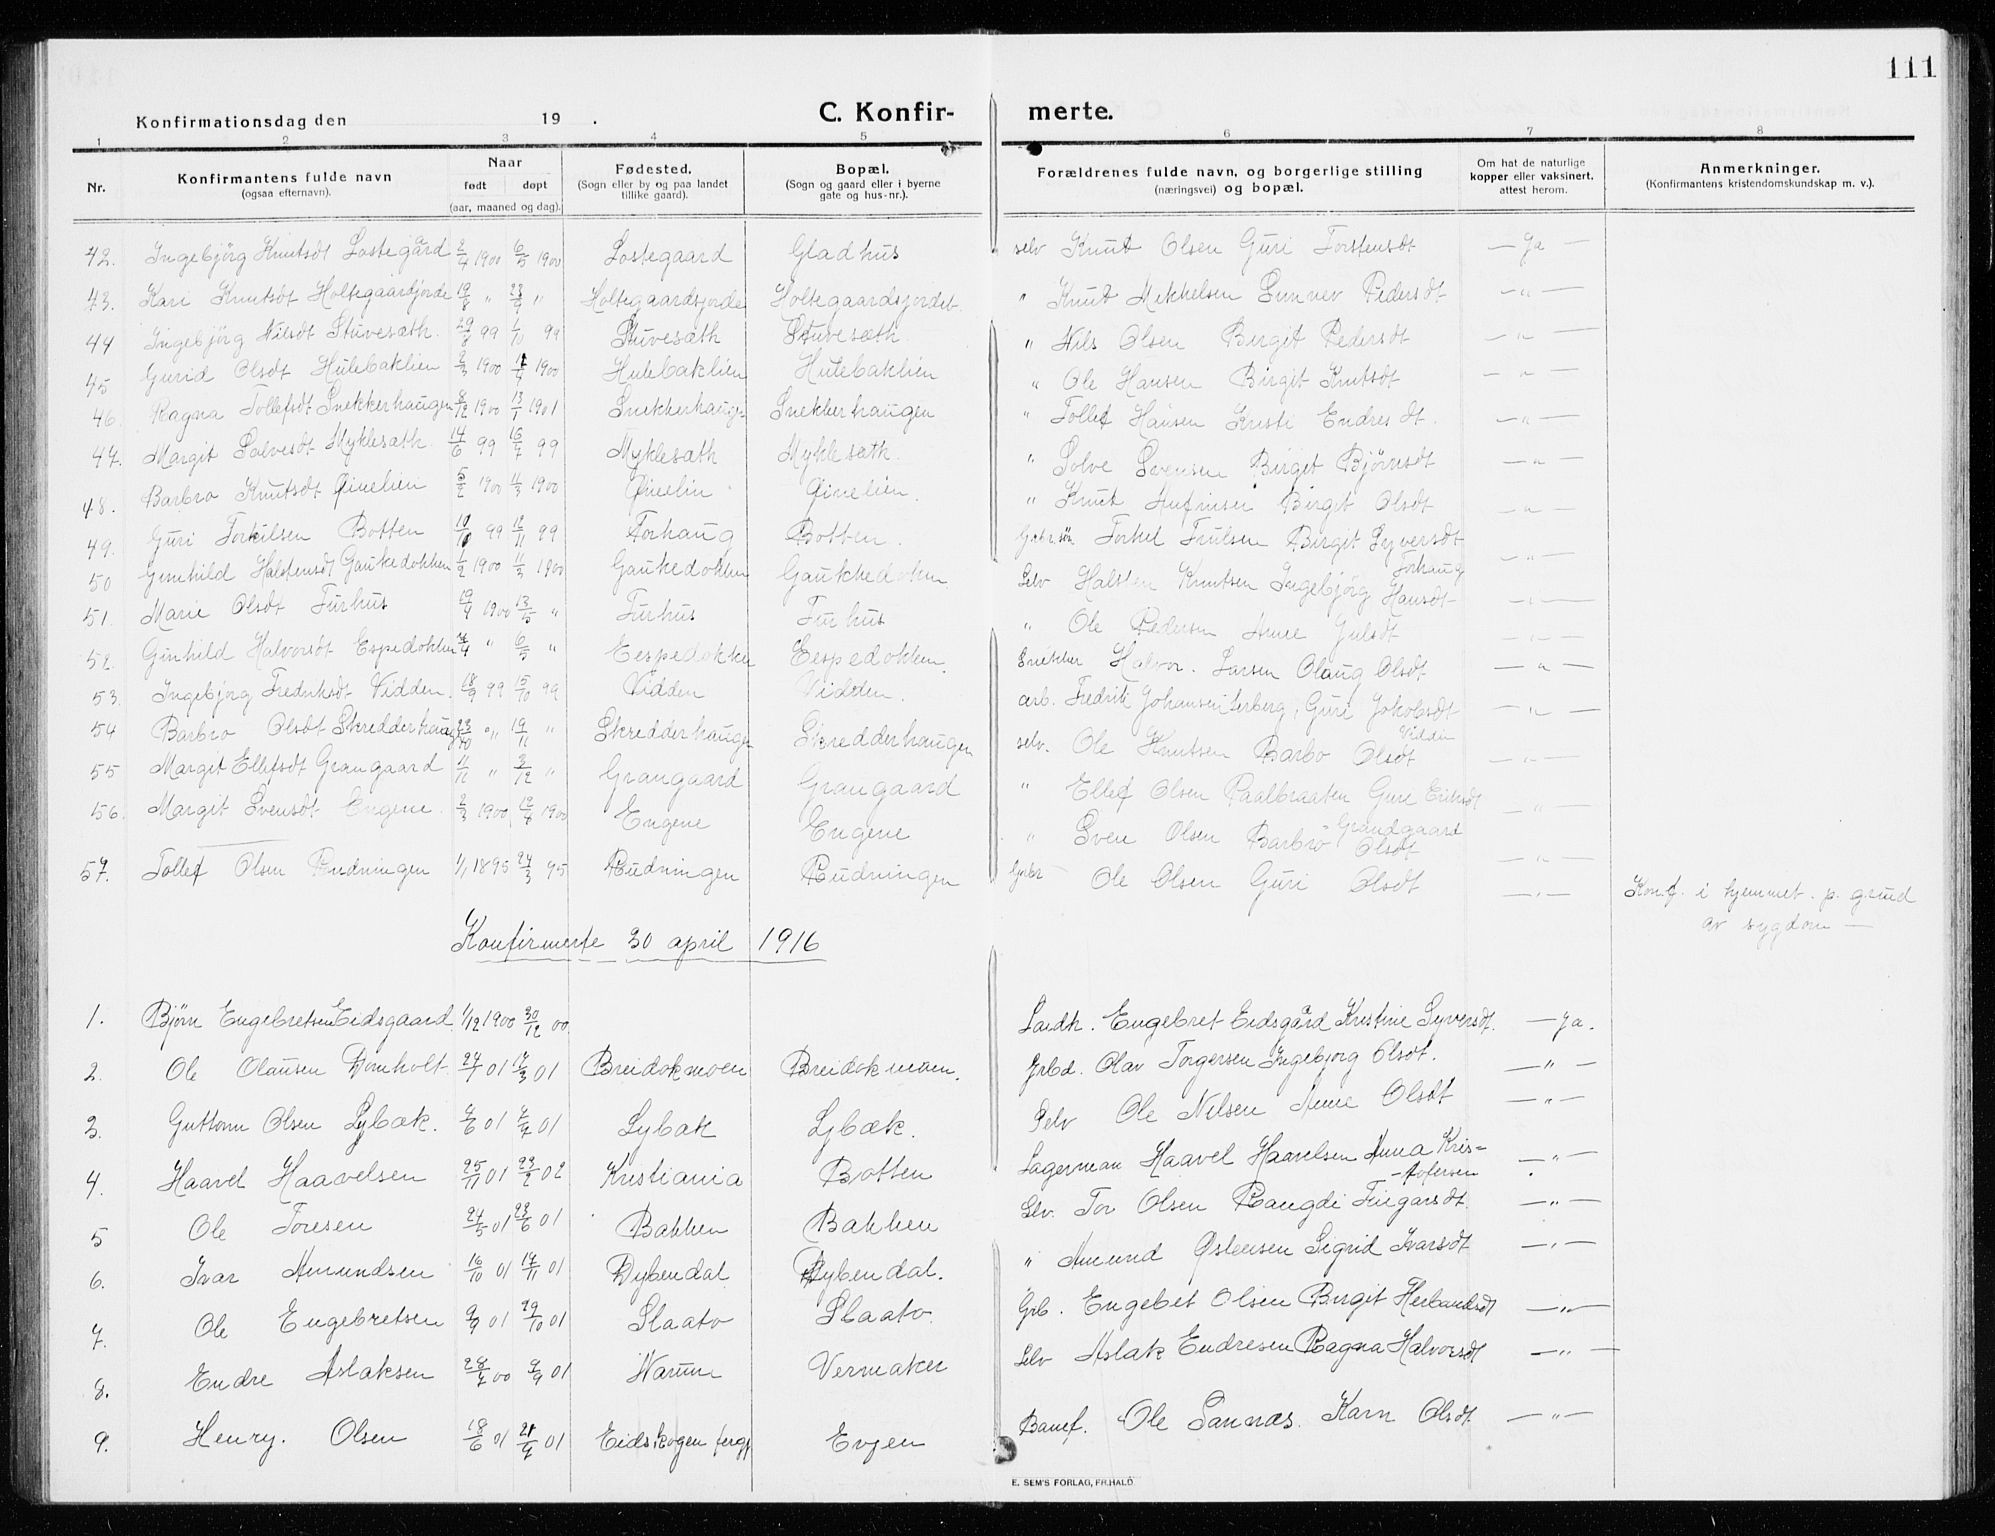 111
Konfirmationsdag den 19 .
C. Konfir- merte.
1 2 3 4 5 6 7 8
Nr.
Konfirmantens fulde navn
(ogsaa efternavn).
Naar
født døpt
(aar, maaned og dag).
Fødested.
(Sogn eller by og paa landet
tillike gaard).
Bopæl.
(Sogn og gaard eller i byerne
gate og hus-nr.).
Forældrenes fulde navn, og borgerlige stilling
(næringsvei) og bopæl.
Om hat de naturlige
kopper eller vaksinert,
attest herom.
Anmerkninger.
(Konfirmantens kristendomskundskap m. v.).
42. Ingebjörg Knutsdt Lostegård 2/4 1900 6/5 1900 Lostegaard Gladhus selv Knut Olsen Guri Torstensdt — Ja —
43. Kari Knutsdt Holtegaardjorde 19/8 " 23/9 " Holtegaardsjordet Holtegaardsjordet " Knut Mikkelsen Sunnev Pedersdt — " —
44 Ingebjörg Nilsdt Stuvesæth 99 99 Stuvesæth Stuvesæth. " Nils Olsen Birgit Pedersdt — " —
45 Gurid Olsdt Hulebaklien 2/3 1900 1900 Hulebaklien Hulebaklien " Ole Hansen Birgit Knutsdt — " —
46. Ragna Tollefsdt Snekkerhaugen 8/12 1900 13/1 1901 Snekkerhaugen Snekkerhaugen " Tollef Hansen Kristi Endresdt. — " —
47. Margit Solvesdt Myklesæth 14/6 99 16/7 99 Myklesæth Myklesæth. " Solve Svensen Birgit Bjørnsdt — " —
48. Barbro Knutsdt Qinelien 5/2 1900 11/3 1900 Qinelin Qinelien. " Knut Anfinsen Birgit Olsdt — " —
49. Guri Torkilsen Botten 10/10 99 12/11 99 Torhaug Botten. Torkel Trulsen Birgit Syversdt
Torhaug — " —
50 Gunhild Halstensdt Gaukedokken 1/2 1900 11/3 1900 Gaukedokken Gaukkedokken Selv Halsten Knutsen Ingebjörg Hansdt — " —
51. Marie Olsdt Furhus 19/4 1900 13/5 " Furhus Furhus " Ole Pedersen Anne Julsdt — " —
52. Gunhild Halvorsdt Espedokken " 6/5 " Eespedokken Eespedokken. Snekker Halvor. Larsen Olaug Olsdt — " —
53. Ingebjørg Fredriksdt Vidden. 18/9 99 15/10 99 Vidden Vidden. arb. Fredrik Johansen, Guri Jakobsdt
Vidden — " —
54 Barbro Olsdt Skredderhaug 23/10 " 19/11 " Skredderhaugen Skredderhaugen selv. Ole Knutsen Barbo Olsdt — " —
55 Margit Ellefsdt Grangaard 11/11 " 3/12 " Grangaard Grangaard " Ellef Olsen Paalbraaten Guri Eriksdt
Grandgaard — " —
56. Margit Svensdt Engene. 2/3 1900. 1900 Engene Engene " Sven Olsen Barbro Olsdt — " —
57. Tollef Olsen Rudningen 1/1 1895 24/3 95 Rudningen Rudningen Grbr Ole Olsen Guri Olsdt — " — Konf. i hjemmet. p. grund
av sygdom —
Konfirmerte 30 april 1916
1. Bjørn Engebretsen Eidsgaard 1/12 1900 30/12 00. Landh. Engebret Eidsgård Kristine Syversdt. — Ja.
2. Ole Olausen Domholt. 24/1 01 17/3 01 Breidokmoen Breidokmoen. Grbd. Olav Torgersen Ingebjorg Olsdt. — " —
3. Guttorm Olsen Lybæk. 01 01 Lybæk Lybæk. Selv Ole Nilsen Anne Olsdt — " —
4. Haavel Haavelsen 25/11 01 23/2 02 Kristiania Botten Lagerman Haavel Haavelsen Anna Kris- — " —
5 Ole Toresen 24/5 01 23/6 01 Bakken Bakken Selv. Tor Olsen Rangdi Fingarsdt. — " —
6. Ivar Amundsen 16/10 01 17/11 01 Dybendal Dybendal. " Amund Østensen Sigrid Ivarsdt — " —
7. Ole Engebretsen 9/9 01 29/10 01 Slaato Slaato. Grb. Engebet Olsen Birgit Herbandsdt — " —
8. Endre Aslaksen 28/7 00 9/9 01 Vermaker Selv Aslak Endresen Ragna Halvorsdt — " —
9. Henry. Olsen 18/6 01 21/7 01 Eidskogen Evjen Banef. Ole Sannæs. Karn Olsdt — " —
E. SEM'S FORLAG, FR.HALD.